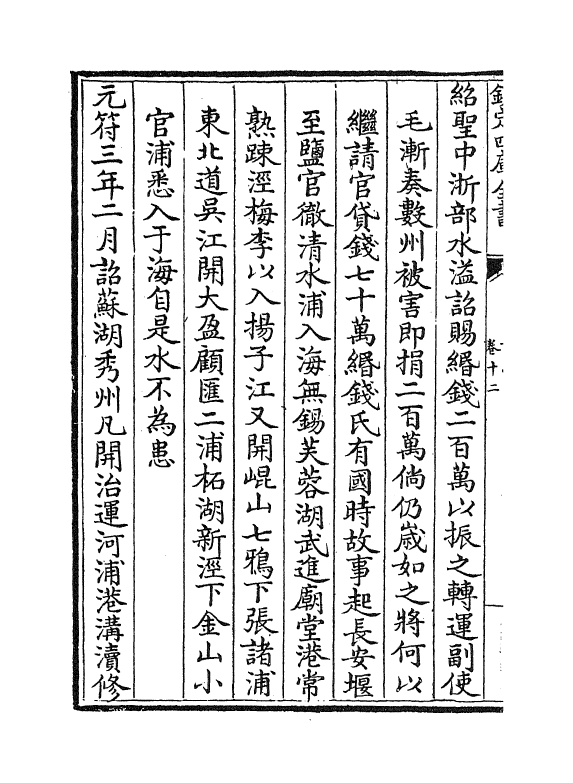 欽定四庫全書
卷十二
紹聖中浙部水溢詔賜緡錢二百萬以振之轉運副使
毛漸奏數州被害即捐二百萬倘仍嵗如之將何以
繼請官貸錢七十萬緡錢氏有國時故事起長安堰
至鹽官徹清水浦入海無錫芙蓉湖武進廟堂港常
熟踈涇梅李以入揚子江又開崐山七鴉下張諸浦
東北道吳江開大盈顧匯二浦柘湖新涇下金山小
官浦悉入于海自是水不為患
元符三年二月詔蘇湖秀州凡開治運河浦港溝瀆修